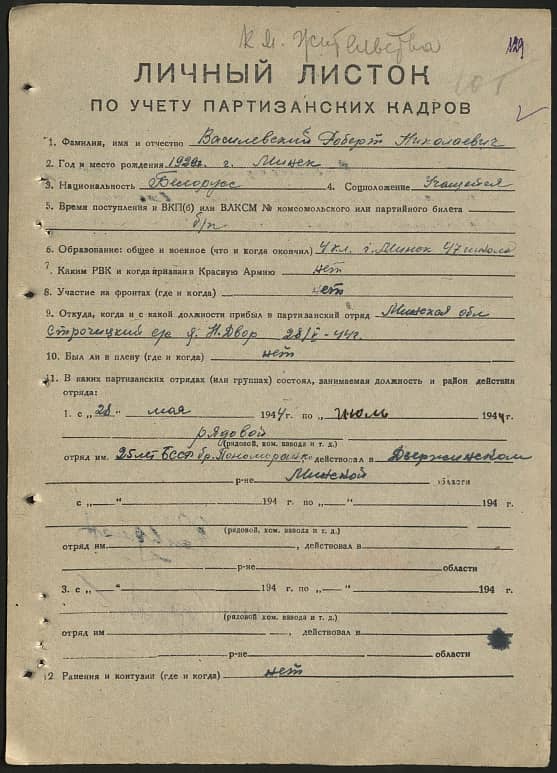 к м. жительства
129
ЛИЧНЫЙ ЛИСТОК
ПО УЧЕТУ ПАРТИЗАНСКИХ КАДРОВ
1. Фамилия, имя и отчество Василевский Роберт Николаевич
2. Год и место рождения г. Минск
3. Национальность Белорусс 4. Соцположение Учащейся
5. Время поступления и ВКП(б) или ВЛКСМ № комсомольского или партийного билета
б/п
6. Образование: общее и военное (что и когда окончил) 4 кл. г. Минск 47 школа
7. Каким РВК и когда призван в Красную Армию нет
8. Участие на фронтах (где и когда) нет
9. Откуда, когда и с какой должности прибыл в партизанский отряд Минская обл
Строчицкий с/с д. Н. Двор 28/V-44г.
10. Был ли в плену (где и когда) нет
11. В каких партизанских отрядах (или группах) состоял, занимаемая должность и район действия
отряда:
1. с „28" мая 1944 г. по „ июль 1944 г.
рядовой
(рядовой, ком. взвода и т. д.)
отряд им. 25 лет БССР бр. Пономоренко действовал в Дзержинском
р-не Минской области
с „—" 194 г. по „—" 194 г.
(рядовой, ком. взвода и т. д.)
отряд им , действовал в
р-не области
3. с „—" 194 г. по „—" 194 г.
(рядовой, ком. взвода и т. д.)
отряд им , действовал в
р-не области
12. Ранения и контузии (где и когда) нет